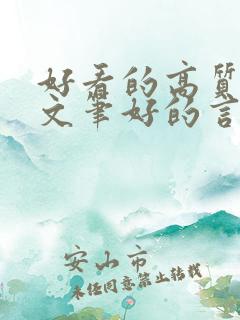 好看的高质
文笔好的言
安山市
未经同意禁止转载